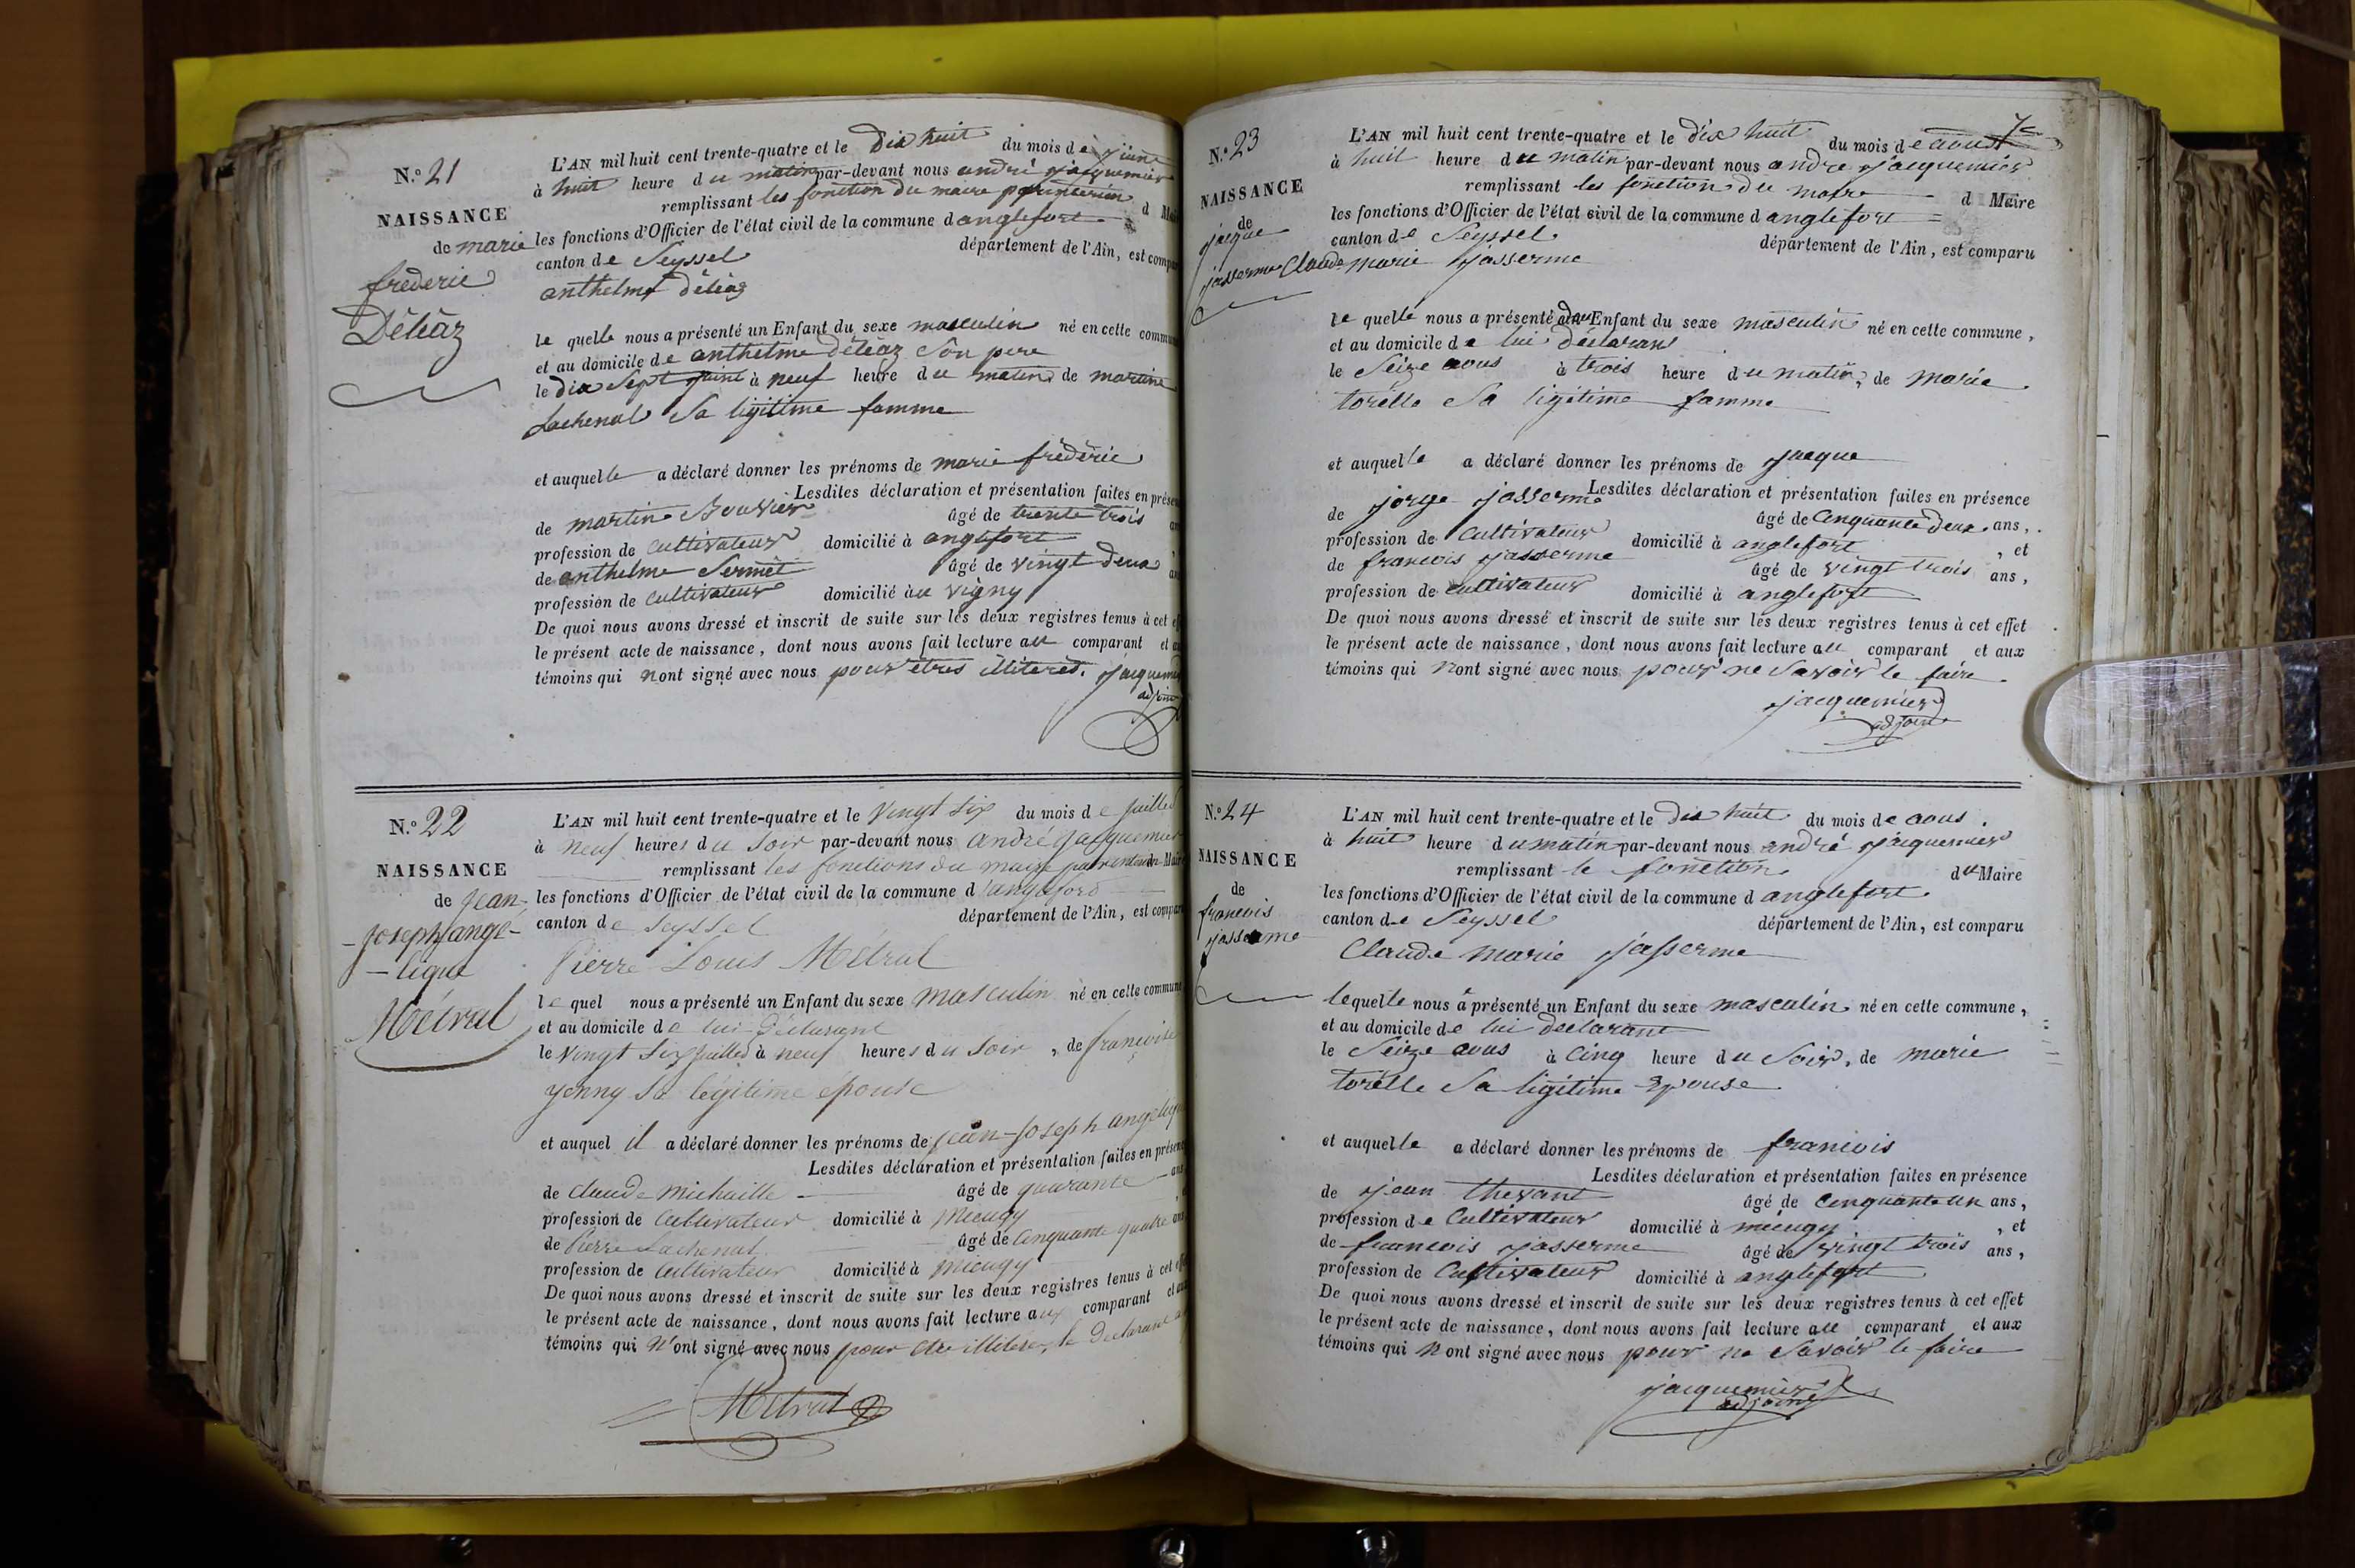 N.° 21
NAISSANCE
de marie
frederic
Déléaz
L'AN mil huit cent trente-quatre et le Dix huit du mois de juin
à huit heure du matin par-devant nous andré jacquemier
remplissant les fonction du maire par interim d Mai
les fonctions d'Officier de l'état civil de la commune d anglefort
canton de Seyssel département de l'Ain, est compar
anthelme déléaz
le quelle nous a présenté un Enfant du sexe masculin né en cette commun
et au domicile de anthelme déléaz Son pere
le dix Sept juint à neuf heure du matin de martine
Lachenal Sa ligitime famme
et auquelle a déclaré donner les prénoms de marie frédéric
Lesdites déclaration et présentation faites en présen
de martin Bouvier âgé de trente trois an
profession de Cultivateur domicilié à anglefort
de anthelme Sermet âgé de vingt deux an
profession de Cultivateur domicilié àu vigny
De quoi nous avons dressé et inscrit de suite sur les deux registres tenus à cet eff
le présent acte de naissance, dont nous avons fait lecture au comparant et a
témoins qui nont signé avec nous pour êtres illiteres. jacquemi
adjoin
N.° 22
NAISSANCE
de Jean-
-Joseph ange-
-lique
Métral
L'AN mil huit cent trente-quatre et le Vingt Six du mois de juillet
à neuf heures du Soir par-devant nous André jacquemier
remplissant les fonctions du maire par interim Mair
les fonctions d'Officier de l'état civil de la commune d'angleford
canton de Seyssel département de l'Ain, est compar
Pierre Louis Métral
le quel nous a présenté un Enfant du sexe masculin né en cette commune
et au domicile de lui déclarant
le vingt Six juillet à neuf heures du Soir, de françoise
yenny Sa légitime épouse
et auquel il a déclaré donner les prénoms de jean-Joseph angelique
Lesdites déclaration et présentation faites en présenc
de Claude Michaille âgé de quarante ans
profession de Cultivateur domicilié à Mieugy
de Pierre Lachenal âgé de Cinquante quatre ans
profession de Cultivateur domicilié à Mieugy
De quoi nous avons dressé et inscrit de suite sur les deux registres tenus à cet eff
le présent acte de naissance, dont nous avons fait lecture aux comparant et aux
témoins qui n'ont signé avec nous pour etre illiteré, le declarant a
Métral
7
N.° 23
NAISSANCE
de
jacque
jasserme
L'AN mil huit cent trente-quatre et le dix huit du mois de aoust
à huit heure du matin par-devant nous andre jacquemier
remplissant les fonction du maire d Maire
les fonctions d'Officier de l'état civil de la commune d anglefort
canton de Seyssel département de l'Ain, est comparu
Claude marie jasserme
le quelle nous a présenté un Enfant du sexe masculin né en cette commune,
et au domicile de lui déclarant
le Seize aous à trois heure du matin, de marie
torélle Sa ligitime famme
et auquelle a déclaré donner les prénoms de jacque
Lesdites déclaration et présentation faites en présence
de jorge jasserme âgé de Cinquante deux ans,
profession de Cultivateur domicilié à anglefort , et
de francois jasserme âgé de vingt trois ans,
profession de cultivateur domicilié à anglefort
De quoi nous avons dressé et inscrit de suite sur les deux registres tenus à cet effet
le présent acte de naissance, dont nous avons fait lecture au comparant et aux
témoins qui nont signé avec nous pour ne Savoir le faire
jacquemier
adjoin
N.° 24
NAISSANCE
de
francois
jasserme
L'AN mil huit cent trente-quatre et le dix huit du mois de aous.
à huit heure du matin par-devant nous andré jacquemier
remplissant le fonction du Maire
les fonctions d'Officier de l'état civil de la commune d anglefort
canton de Seyssel département de l'Ain, est comparu
Claude marie jasserme
lequelle nous a présenté un Enfant du sexe masculin né en cette commune,
et au domicile de lui declarant
le Seize aous à Cinq heure du Soir, de marie
torélle Sa ligitime Epouse
et auquelle a déclaré donner les prénoms de francois
Lesdites déclaration et présentation faites en présence
de jean thevant âgé de Cinquante un ans,
profession de Cultivateur domicilié à mieugy , et
de francois jasserme âgé de vingt trois ans,
profession de Cultivateur domicilié à anglefort
De quoi nous avons dressé et inscrit de suite sur les deux registres tenus à cet effet
le présent acte de naissance, dont nous avons fait lecture au comparant et aux
témoins qui nont signé avec nous pour ne Savoir le faire
jacquemier
adjoint